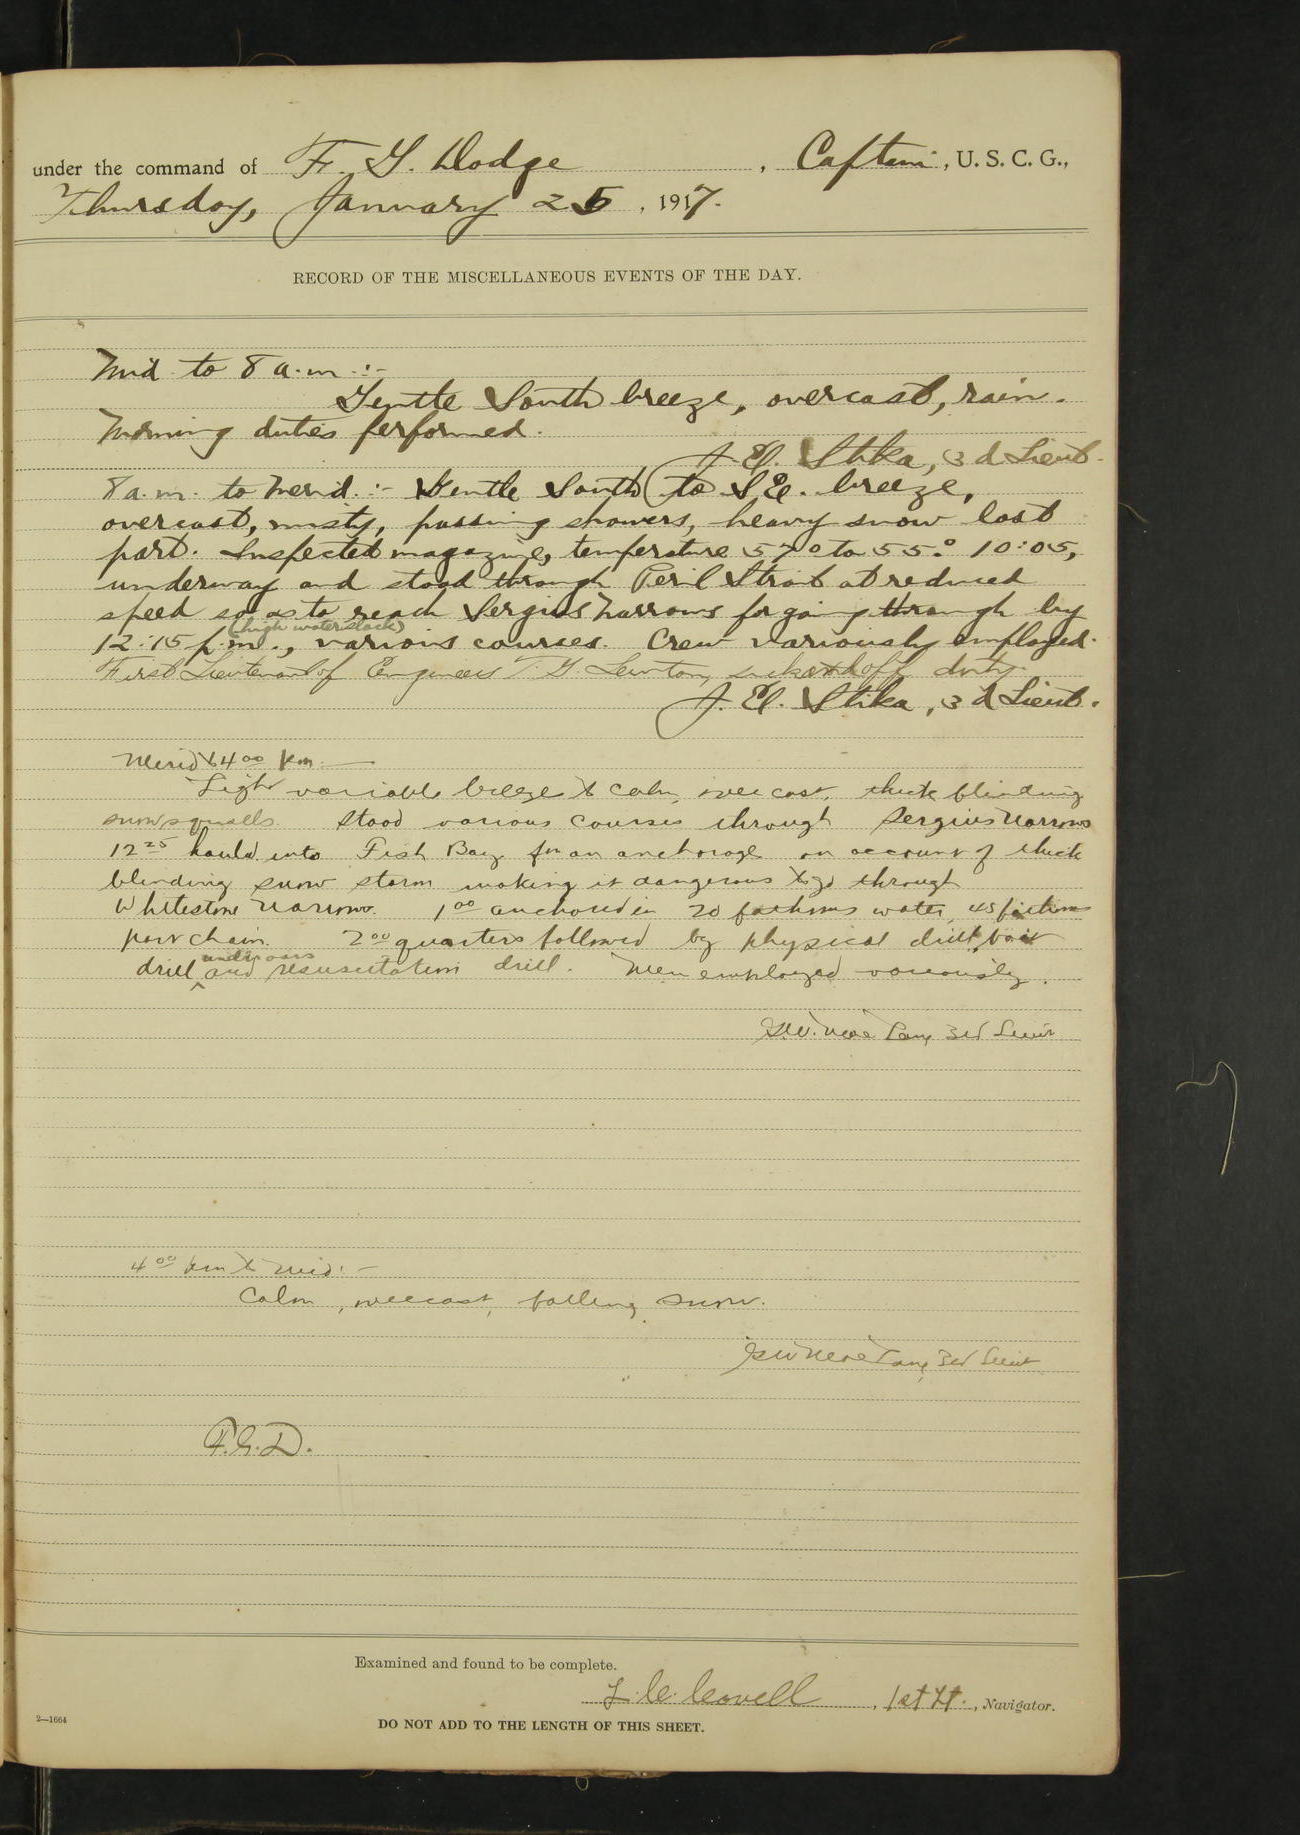 under the command of F. G. Dodge, Captain, U. S. C. G.,
Thursday, January 25, 1917.
RECORD OF THE MISCELLANEOUS EVENTS OF THE DAY.
Mid to 8 a.m.:-
Gentle South breeze, overcast, rain.
Morning duties performed.
J. E. Stika, 3d Lieut.
8 a.m. to Merid.:- Gentle South to S.E. breeze,
overcast, misty, passing showers, heavy snow last
part. Inspected magazine, temperature 57° to 55°. 10:05,
underway and stood through Peril Strait at reduced
speed so as to reach Sergius Narrows for going through by
(high water slack)
12:15 p.m., various courses. Crew variously employed.
First Lieutenant of Engineers T. G. Lewton, sick and off duty.
J. E. Stika, 3d Lieut.
Merid to 4 00 p.m.
Light variable breeze to calm, overcast, thick blinding
snow squalls. Stood various courses through Sergius Narrows
12 25 hauled into Fish Bay for an anchorage on account of thick
blinding snow storm making it dangerous to go through
Whitestone Narrows. 1 00 anchored in 20 fathoms water, 45 fathoms
port chain. 2 00 quarters followed by physical drill, boat
under oars
drill and resuscitation drill. Men employed variously.
3rd Lieut
4 00 pm to Mid:-
Calm, overcast, falling snow.
3rd Lieut
F.G.D.
Examined and found to be complete.
L. C. Covell, 1st Lt., Navigator.
2—1664
DO NOT ADD TO THE LENGTH OF THIS SHEET.